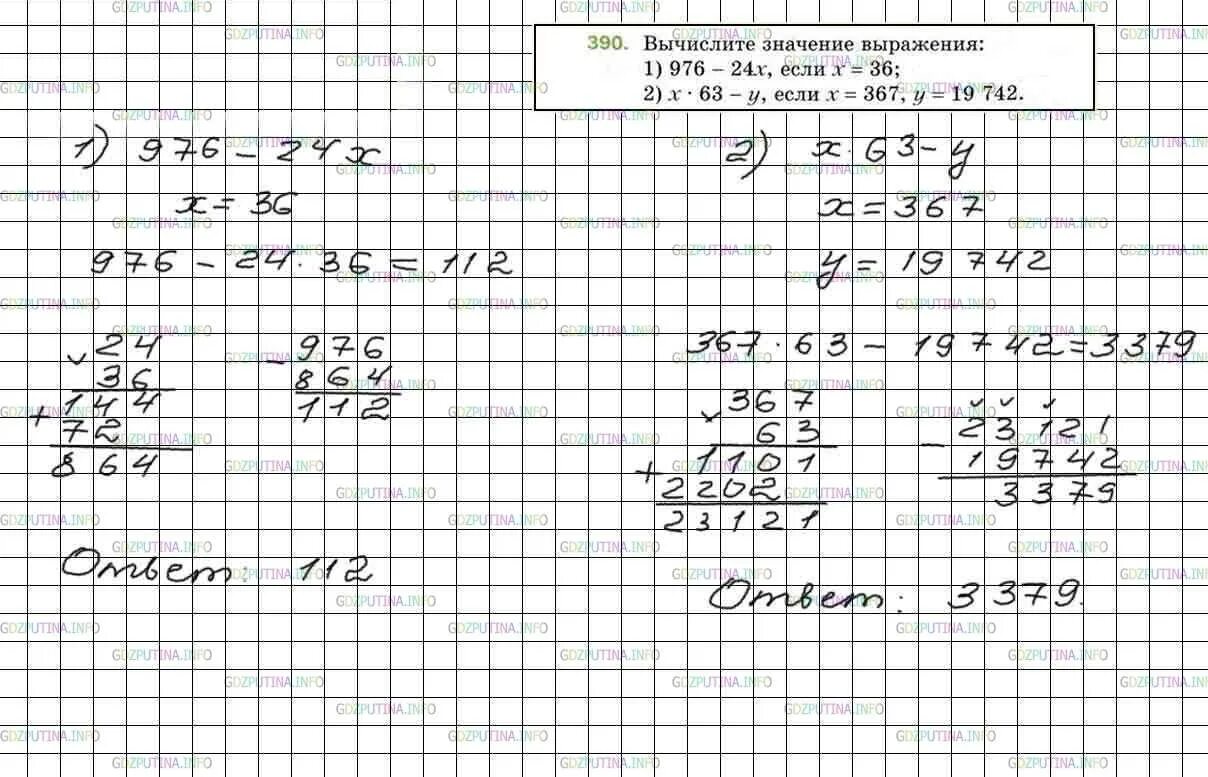 390. Вычислите значение выражения:
1) 976 – 24x, если x = 36;
2) x · 63 – y, если x = 367, y = 19 742.
1) 976 – 24x
x = 36
976 – 24 · 36 = 112
24
36
144
+
72
864
– 976
864
112
Ответ: 112
2) x · 63 – y
x = 367
y = 19 742
367 · 63 – 19742 = 3379
367
63
1101
+
2202
23121
– 23121
19742
3379
Ответ: 3379.
GDZPUTINA.INFO